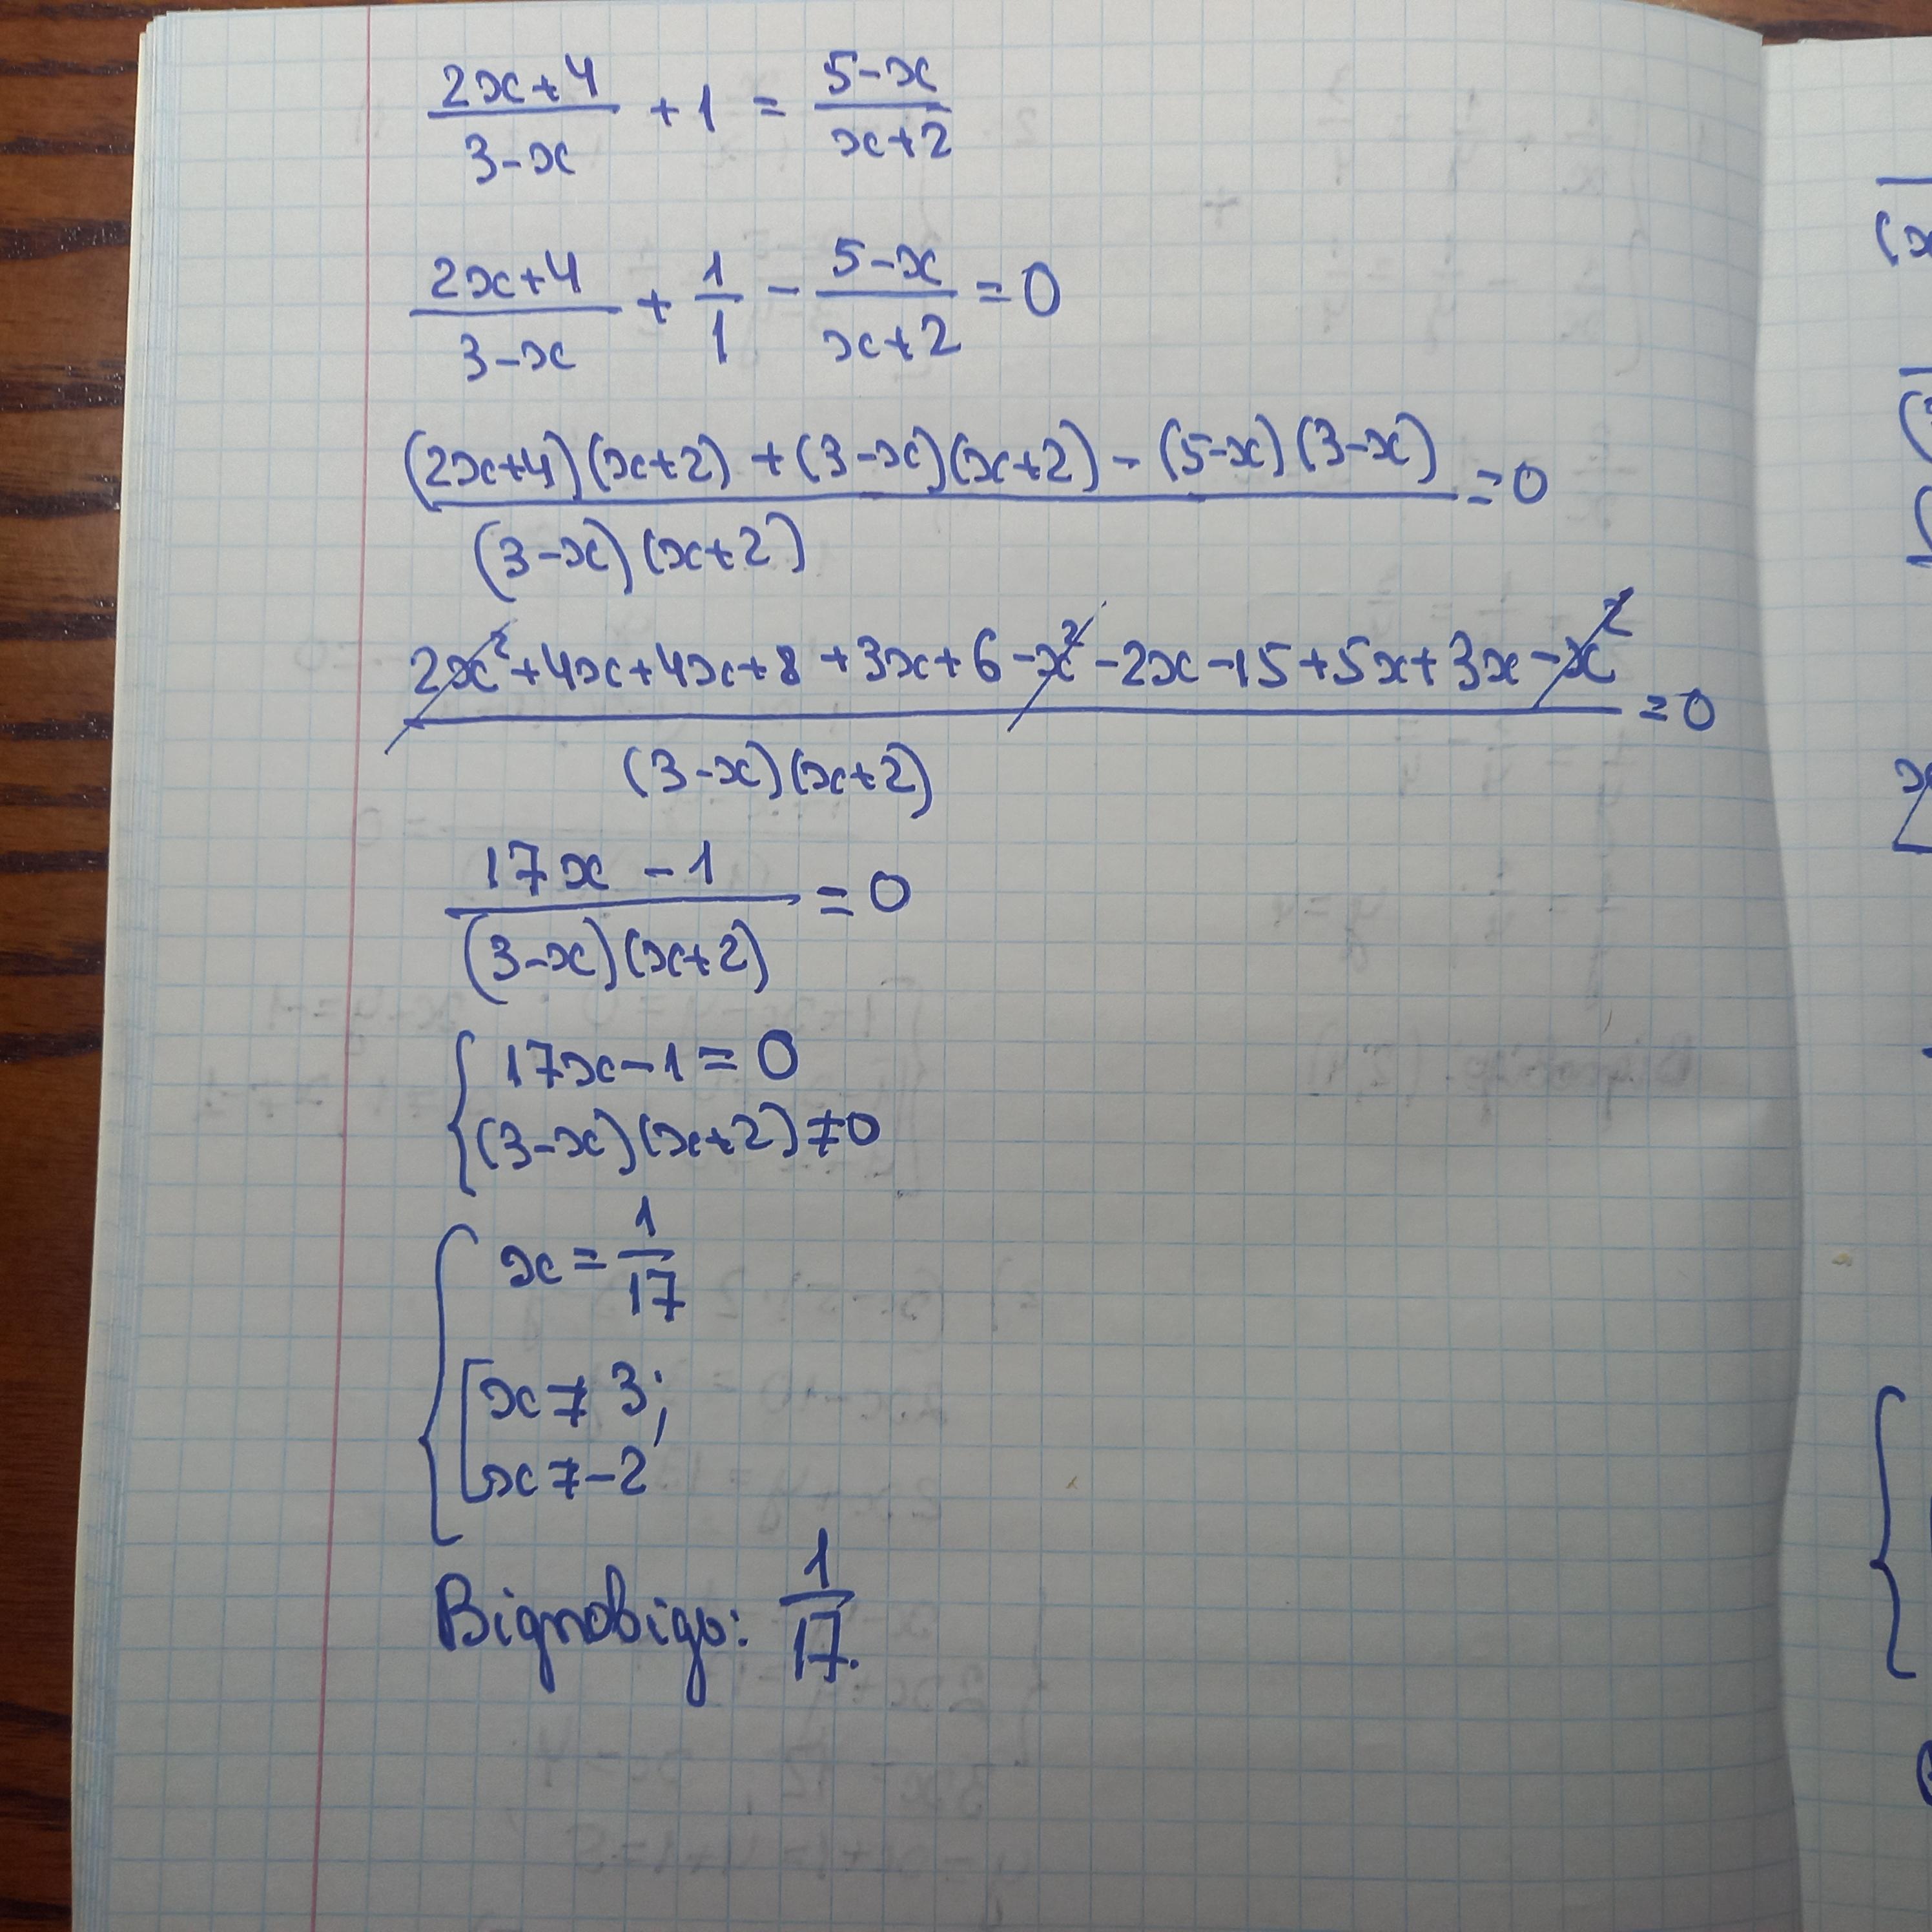 (2x+4)/(3-x) + 1 = (5-x)/(x+2)
(2x+4)/(3-x) + 1/1 - (5-x)/(x+2) = 0
((2x+4)(x+2) + (3-x)(x+2) - (5-x)(3-x))/((3-x)(x+2)) = 0
(2x²+4x+4x+8+3x+6-x²-2x-15+5x+3x-x²)/((3-x)(x+2)) = 0
(17x-1)/((3-x)(x+2)) = 0
{ 17x-1=0
(3-x)(x+2)≠0
{ x = 1/17
[ x≠3;
x≠-2
Відповідь: 1/17.